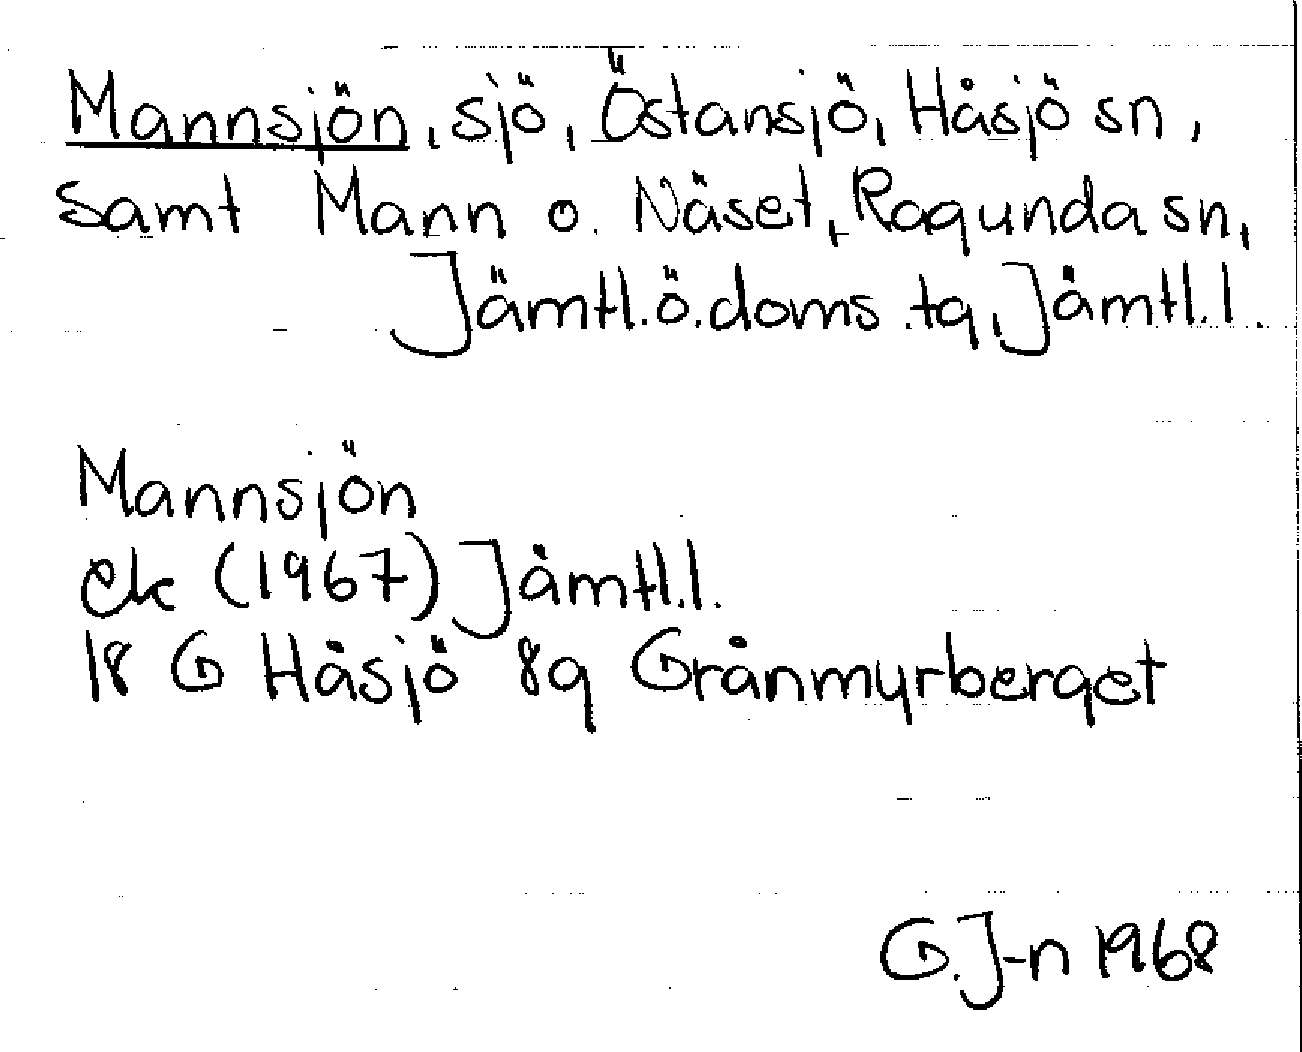 Mannsjön, sjö, Östansjö, Håsjö sn,
samt Mann o. Näset, Ragunda sn,
Jämtl.ö.doms.tg, Jämtl.l.
Mannsjön
ek (1967) Jämtl.l.
18 G Håsjö 8g Grånmyrberget
G.J-n 1968